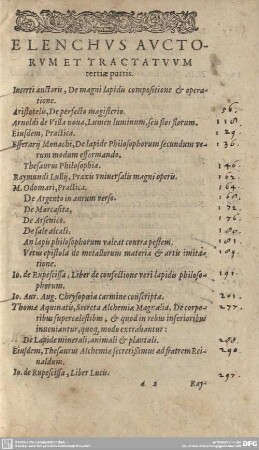 ELENCHVS AVCTO-
RVM ET TRACTATVVM
tertiæ partis.
Incerti auctoris, De magni lapidis compositione & opera-
tione.
Aristotelis, De perfecto magisterio. 56.
Arnoldi de Villa noua, Lumen luminum, seu flos florum. 118.
Eiusdem, Practica. 129.
Efferarij Monachi, De lapide Philosophorum secundum ve-
rum modum efformando. 136.
Thesaurus Philosophiæ. 146.
Raymundi Lullij, Praxis vniuersalis magni operis. 162.
M. Odomari, Practica. 164.
De Argento in aurum verso. 168.
De Marcasita. 172.
De Arsenico. 176.
De sale alcali. 180.
An lapis philosophorum valeat contra pestem. 181.
Vetus epistola de metallorum materia & artis imita-
tione.
Io. de Rupescissa, Liber de confectione veri lapidis philoso-
phorum. 191.
Io. Aur. Aug. Chrysopœia carmine conscripta. 201.
Thomæ Aquinatis, Secreta Alchemiæ Magnalia, De corpo-
ribus supercælestibus, & quod in rebus inferioribus
inueniantur, quoq; modo extrahantur: 277.
De Lapide minerali, animali & plantali.
Eiusdem, Thesaurus Alchemiæ secretissimus ad fratrem Rei-
naldum. 290.
Io. de Rupescissa, Liber Lucis. 297.
a 2 Ray-
DFG